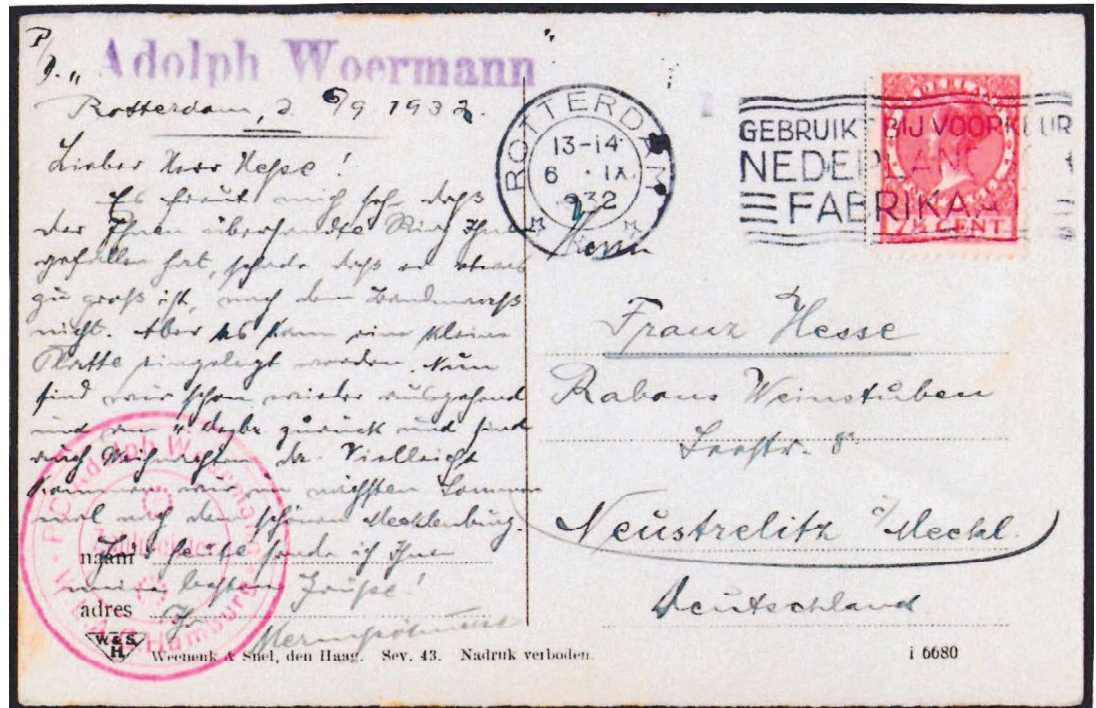 P/
D. „
Adolph Woermann
"
Rotterdam, d. 6/9 1932.
Lieber Herr Hesse!
Es freut mich sehr, daß
der Ihnen übersandte Ring Ihnen
gefallen hat, schade daß er etwas
zu groß ist, nach dem Bandmaß
nicht. Aber es kann eine kleine
Platte eingelegt werden. Nun
sind wir schon wieder ausgehend
und am zurück und sind
auch Weihnachten da. Vielleicht
kommen wir im nächsten Sommer
mal nach dem schönen Mecklenburg.
Für heute sende ich Ihnen
meine besten Grüße!
Ihr
naam
adres
P.D. Adolph Woermann
Zahlmeister
Hamburg
W & S
H
ROTTERDAM
13-14
6 · IX
932
GEBRUIKT BIJ VOORKEUR
NEDERLANDSCH
FABRIKAAT
NEDERLAND
7½ CENT
Herrn
Franz Hesse
Rabans Weinstuben
Seestr. 8
Neustrelitz i/Meckl.
Deutschland
Weenenk & Snel, den Haag. Sev. 43. Nadruk verboden.
i 6680